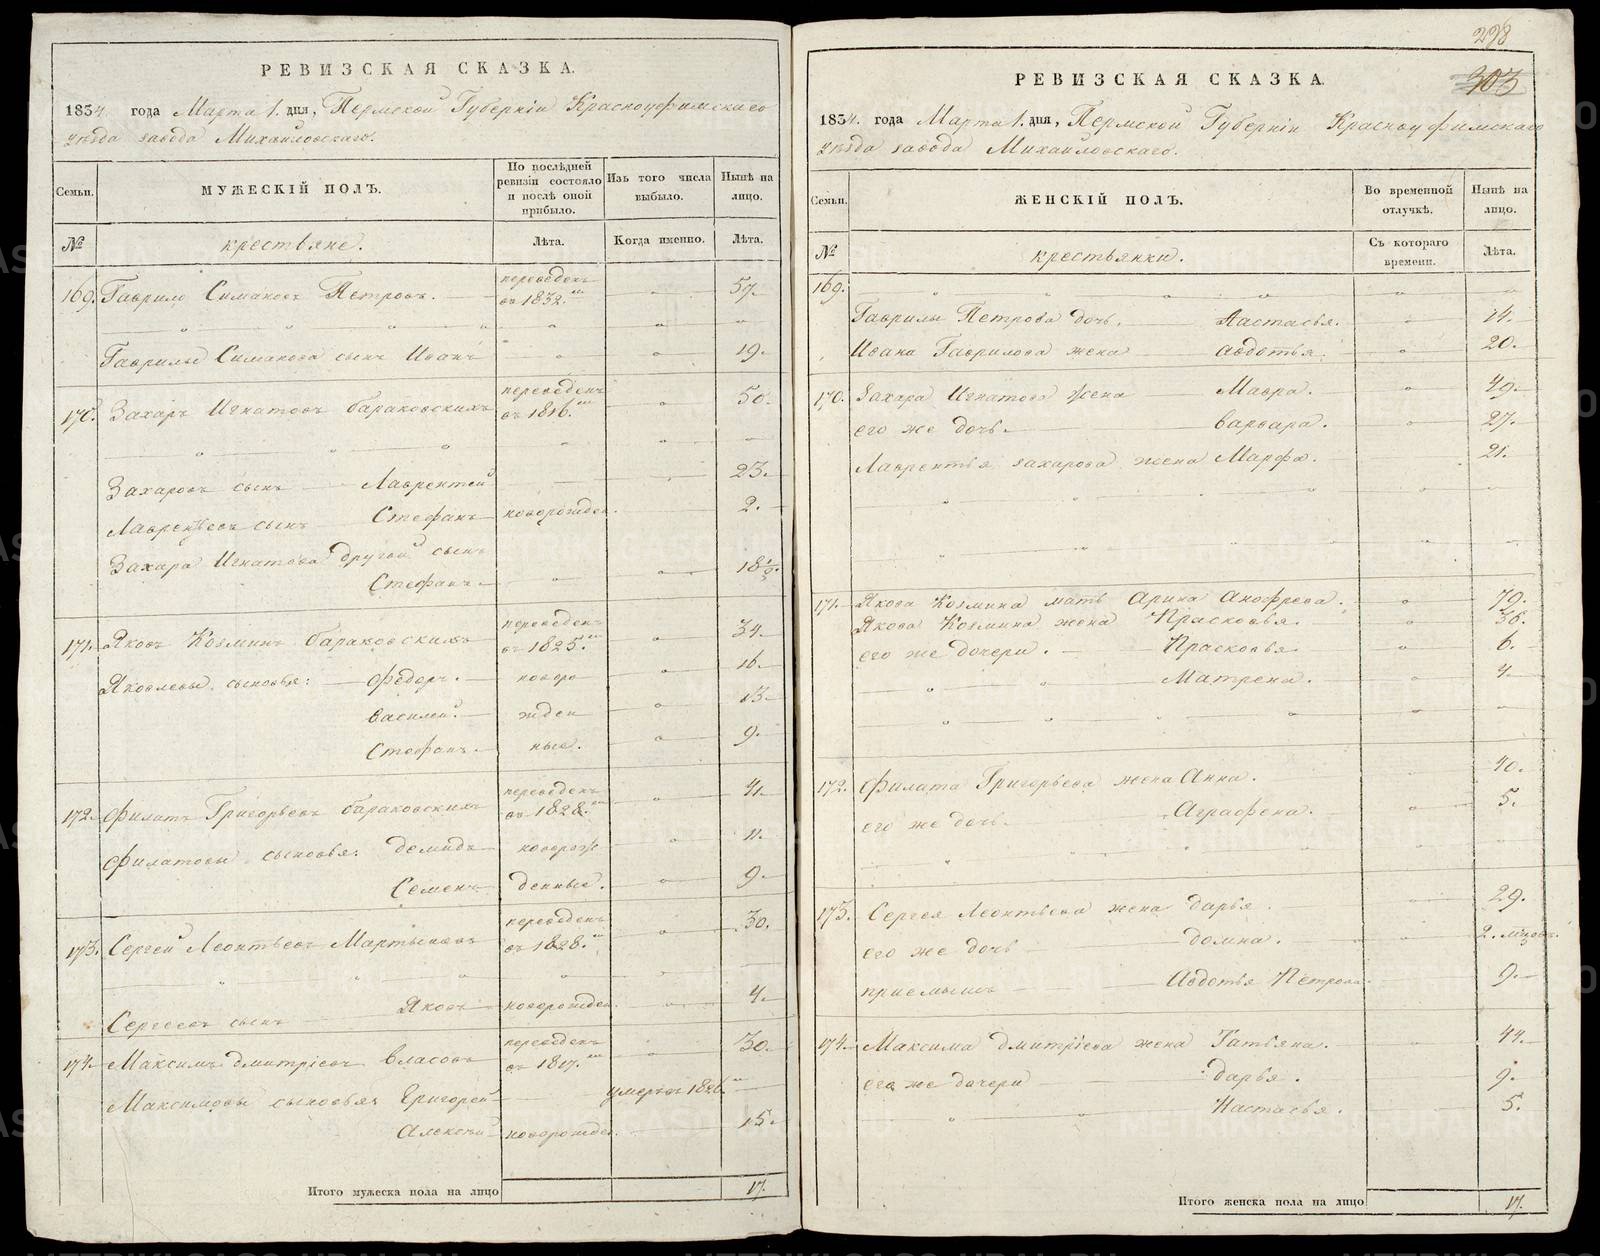 РЕВИЗСКАЯ СКАЗКА.
1834. года Марта 1. дня, Пермской Губерніи Красноуфимскаго
уѣзда завода Михайловскаго.
Семьи. МУЖЕСКІЙ ПОЛЪ. По послѣдней ревизіи состояло и послѣ оной прибыло. Изъ того числа выбыло. Нынѣ на лицо.
№ крестьяне. Лѣта. Когда именно. Лѣта.
169. Гаврило Симановъ Петровъ. переведенъ въ 1832.мъ 57.
Гаврилы Симанова сынъ Иванъ 19.
170. Захаръ Игнатовъ бараковскихъ переведенъ въ 1816.мъ 50.
Захаровъ сынъ Лаврентей 23.
Лаврентьевъ сынъ Стефанъ новорожден. 2.
Захара Игнатова другой сынъ
Стефанъ. 18½.
171. Яковъ Козминъ бараковскихъ переведенъ въ 1825.мъ 34.
Яковлевы сыновья: Федоръ. новоро 16.
Василей. жден 13.
Стефанъ. ные. 9.
172. Филатъ Григорьевъ бараковскихъ переведенъ въ 1828.мъ 41.
Филатовы сыновья: Демидъ новорож 11.
Семенъ денные. 9.
173. Сергей Леонтьевъ Мартыновъ переведенъ въ 1828.мъ 30.
Сергеевъ сынъ Яковъ новорожден. 4.
174. Максимъ Дмитріевъ Власовъ переведенъ въ 1817.мъ 30.
Максимовы сыновья Григорей умеръ въ 1826.мъ
Алексѣй новорожден. 15.
Итого мужеска пола на лицо 17.
298
303
РЕВИЗСКАЯ СКАЗКА.
1834. года Марта 1. дня, Пермской Губерніи Красноуфимскаго
уѣзда завода Михайловскаго.
Семьи. ЖЕНСКІЙ ПОЛЪ. Во временной отлучкѣ. Нынѣ на лицо.
№ крестьянки. Съ котораго времени. Лѣта.
169.
Гаврилы Петрова дочь. Настасья. 14.
Ивана Гаврилова жена Авдотья. 20.
170. Захара Игнатова жена Мавра. 49.
его же дочь. Варвара. 27.
Лаврентья Захарова жена Марфа. 21.
171. Якова Козмина мать Арина Анофрева. 70.
Якова Козмина жена Прасковья. 36.
его же дочери. Прасковья. 6.
Матрена. 4.
172. Филата Григорьева жена Анна. 40.
его же дочь. Аграфена. 5.
173. Сергея Леонтьева жена Дарья. 29.
его же дочь Домна. 2. мѣсяц.
приемышъ Авдотья Петрова. 9.
174. Максима Дмитріева жена Татьяна. 44.
его же дочери Дарья. 9.
Настасья. 5.
Итого женска пола на лицо 17.